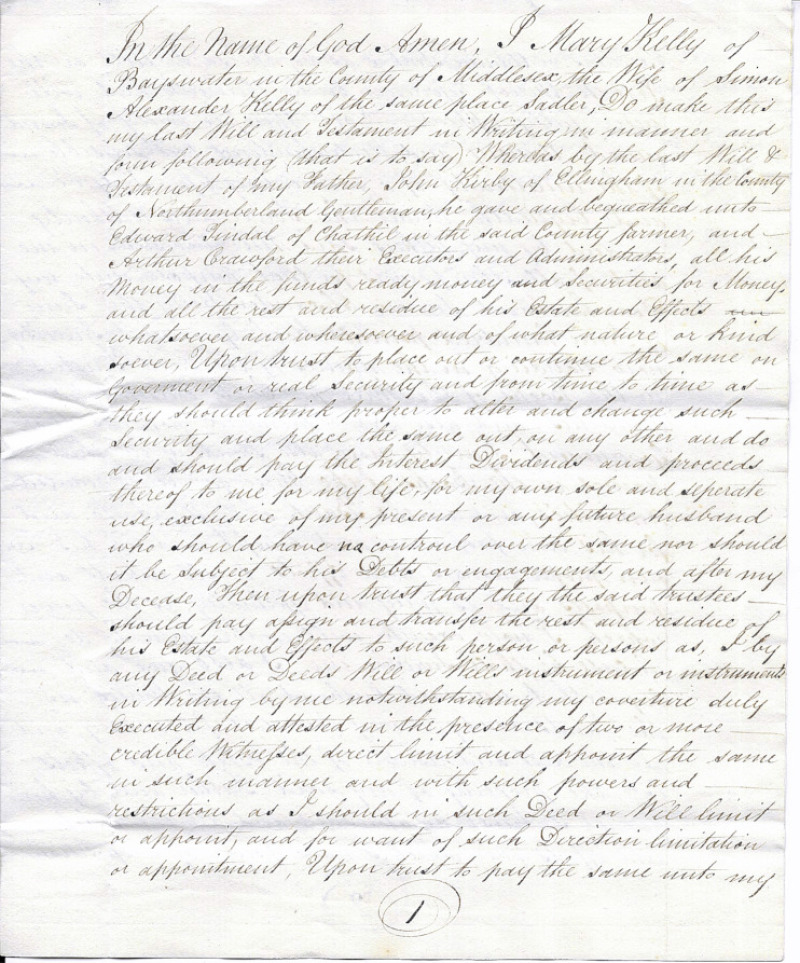 In the Name of God Amen, I Mary Kelly of
Bayswater in the County of Middlesex, the Wife of Simon
Alexander Kelly of the same place Sadler, Do make this
my last Will and Testament in Writing in manner and
form following (that is to say) Whereas by the last Will &
Testament of my Father, John Kirby of Ellingham in the County
of Northumberland Gentleman, he gave and bequeathed unto
Edward Tindal of Chathil in the said County farmer, and
Arthur Crawford their Executors and Administrators, all his
Money in the funds ready money and Securities for Money,
and all the rest and residue of his Estate and Effects
whatsoever and wheresoever and of what nature or kind
soever, Upon trust to place out or continue the same on
Goverment or real Security and from time to time as
they should think proper to alter and change such
Security and place the same out, on any other and do
and should pay the Interest Dividends and proceeds
thereof to me for my life, for my own sole and seperate
use, exclusive of my present or any future husband
who should have no controul over the same nor should
it be subject to his Debts or engagements, and after my
Decease, Then upon trust that they the said trustees
should pay assign and transfer the rest and residue of
his Estate and Effects to such person or persons as, I by
any Deed or Deeds Will or Wills instrument or instruments
in Writing by me notwithstanding my coverture duly
Executed and attested in the presence of two or more
credible Witnesses, direct limit and appoint the same
in such manner and with such powers and
restrictions as I should in such Deed or Will limit
or appoint, and for want of such Direction limitation
or appointment, Upon trust to pay the same unto my
1